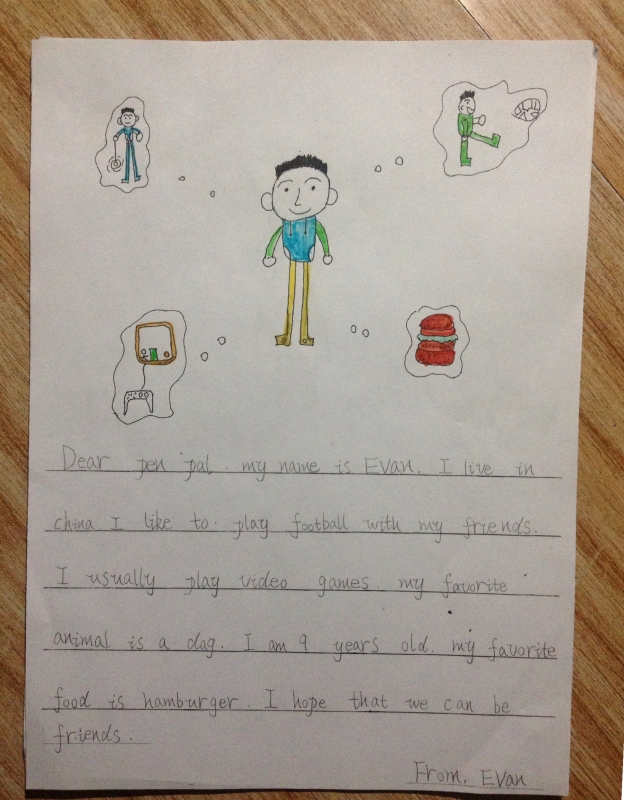 Dear pen pal. my name is Evan. I live in
china I like to play football with my friends.
I usually play video games my favorite
animal is a dog. I am 9 years old. my favorite
food is hamburger. I hope that we can be
friends.
From. Evan